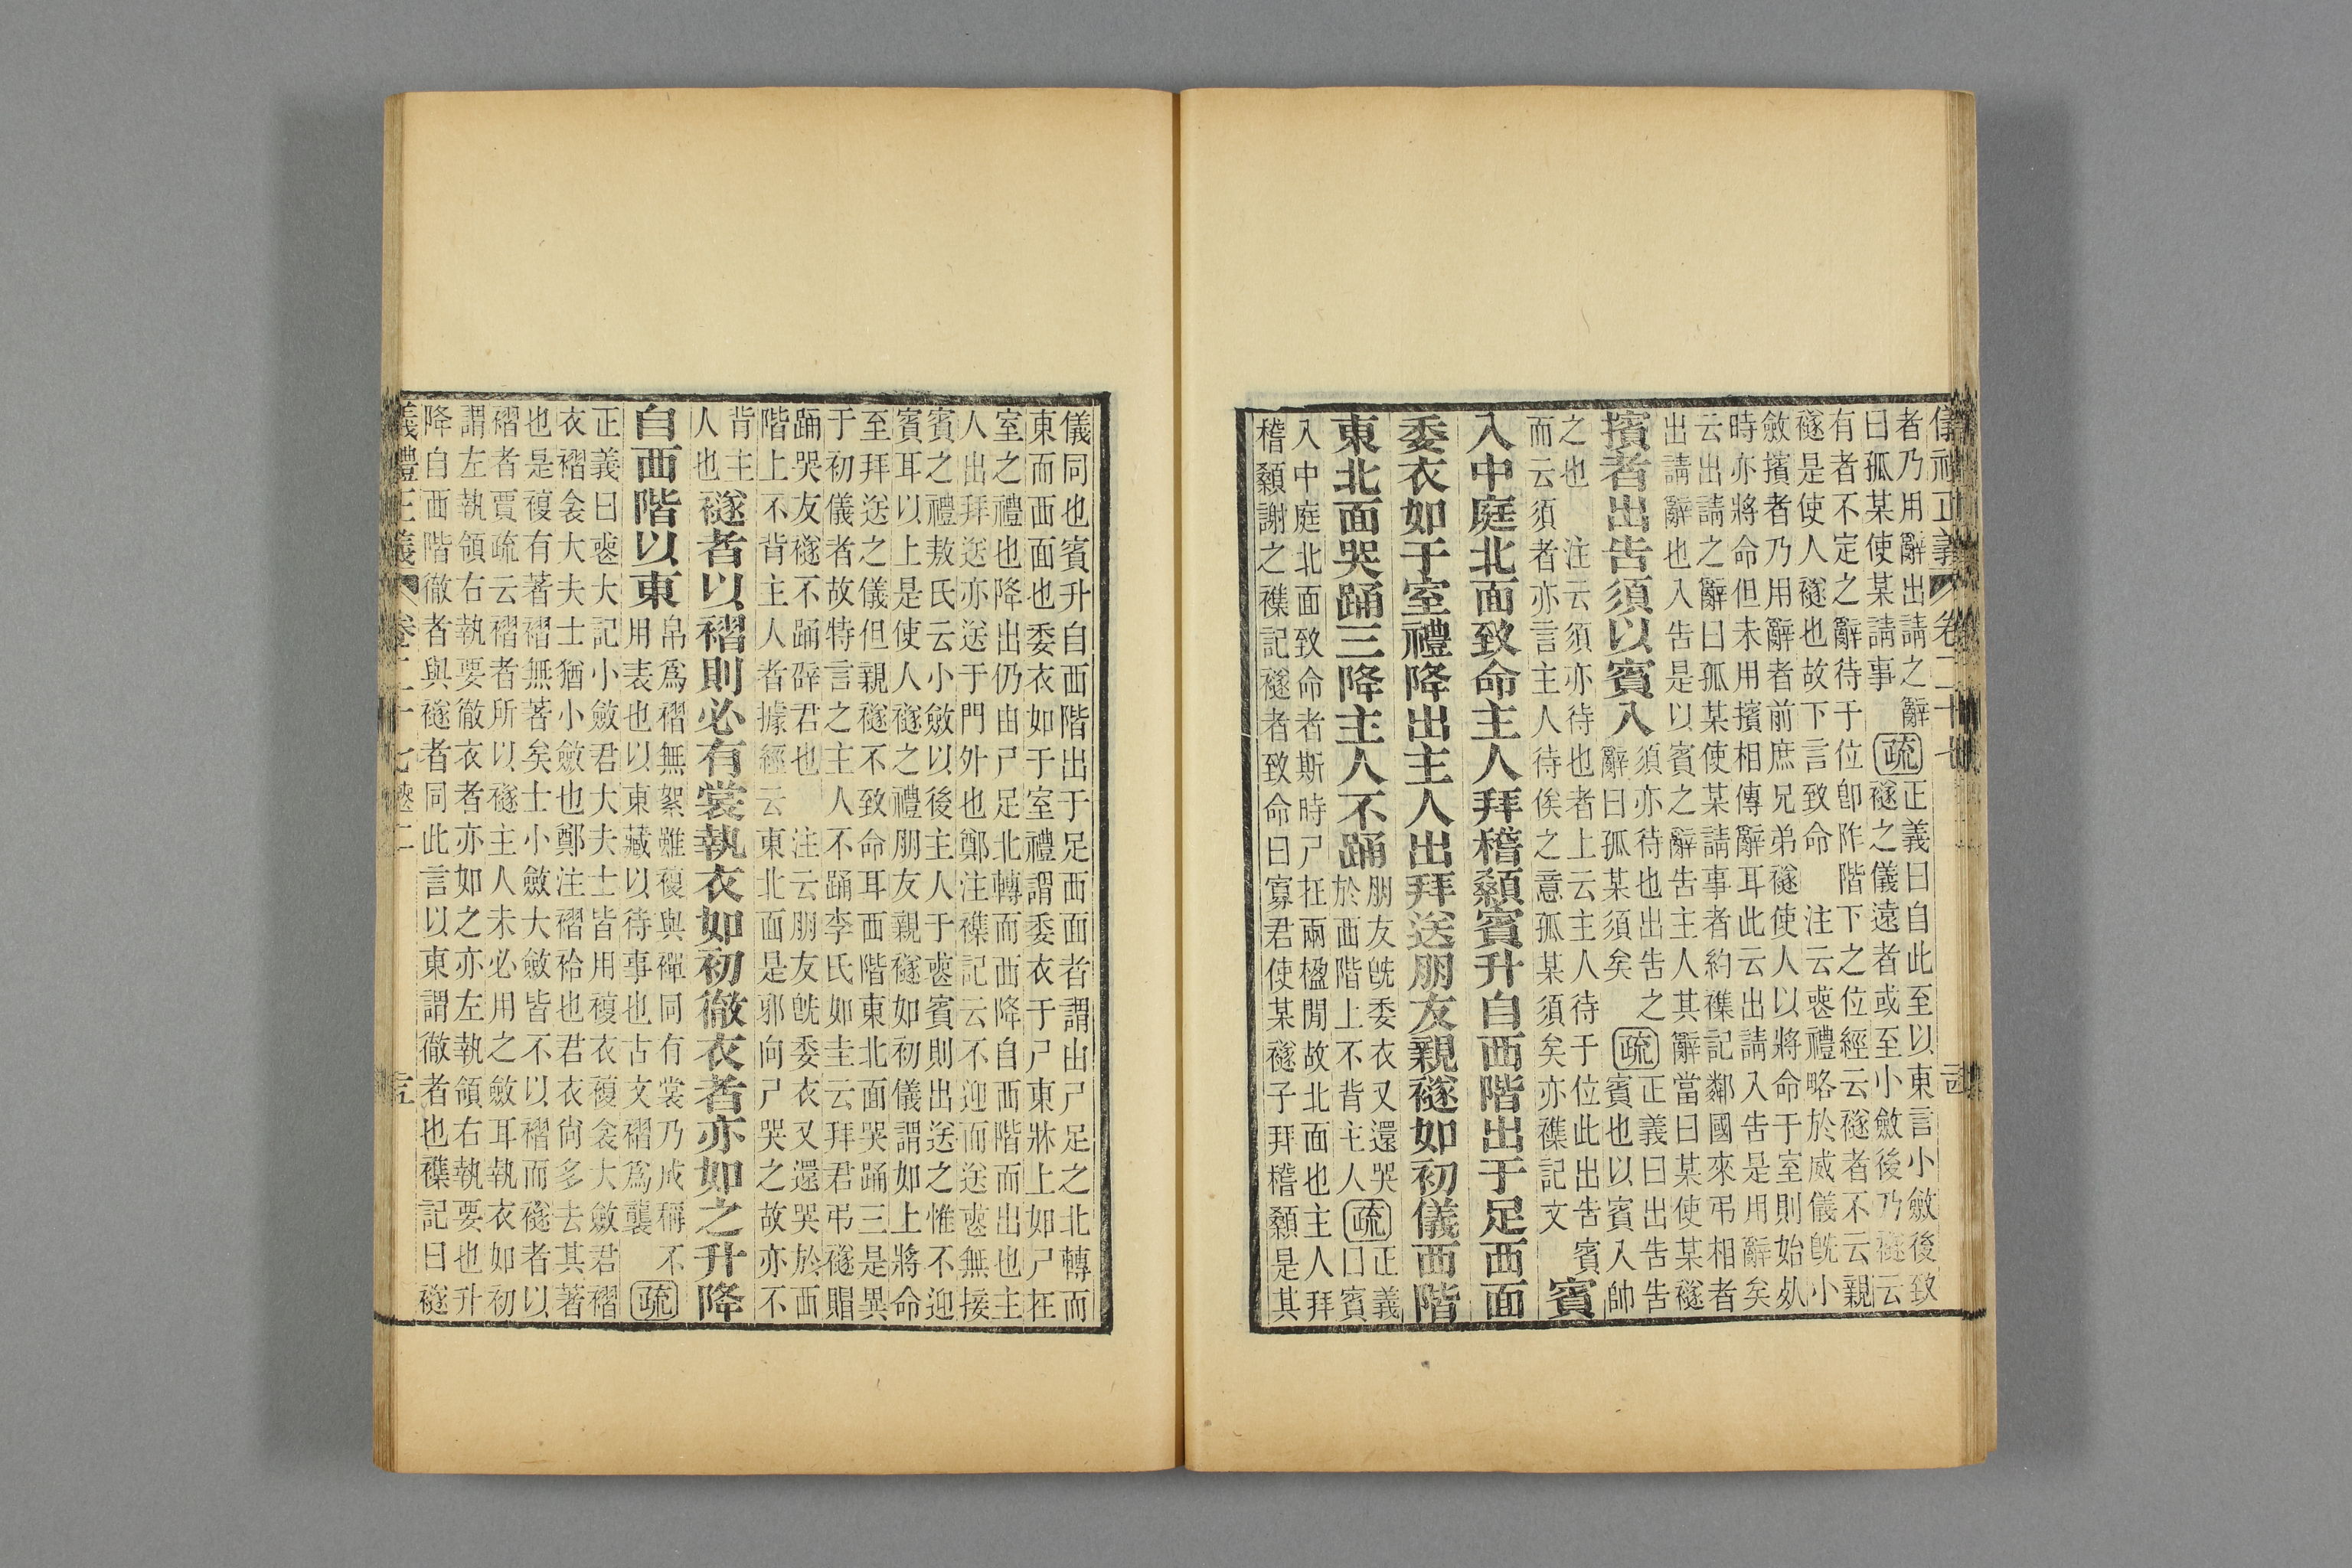 儀禮正義 卷二十七
者乃用辭出請之辭
曰孤某使某請事
疏
正義曰自此至以東言小斂後致
襚之儀遠者或至小斂後乃襚云
有者不定之辭待于位卽阼階下之位經云襚者不云親
襚是使人襚也故下言致命　注云喪禮略於威儀旣小
斂擯者乃用辭者前庶兄弟襚使人以將命于室則始死
時亦將命但未用擯相傳辭耳此云出請入告是用辭矣
云出請之辭曰孤某使某請事者約襍記鄰國來弔相者
出請辭也入告是以賓之辭告主人其辭當曰某使某襚
擯者出告須以賓入
須亦待也出告之
辭曰孤某須矣
疏
正義曰出告告
賓也以賓入帥
之也　注云須亦待也者上云主人待于位此出告賓
而云須者亦言主人待俟之意孤某須矣亦襍記文
賓
入中庭北面致命主人拜稽顙賓升自西階出于足西面
委衣如于室禮降出主人出拜送朋友親襚如初儀西階
東北面哭踊三降主人不踊
朋友旣委衣又還哭
於西階上不背主人
疏
正義
曰賓
入中庭北面致命者斯時尸在兩楹閒故北面也主人拜
稽顙謝之襍記襚者致命曰寡君使某襚子拜稽顙是其
儀同也賓升自西階出于足西面者謂由尸足之北轉而
東而西面也委衣如于室禮謂委衣于尸東牀上如尸在
室之禮也降出仍由尸足北轉而西降自西階而出也主
人出拜送亦送于門外也鄭注襍記云不迎而送喪無接
賓之禮敖氏云小斂以後主人于喪賓則出送之惟不迎
賓耳以上是使人襚之禮朋友親襚如初儀謂如上將命
至拜送之儀但親襚不致命耳西階東北面哭踊三是異
于初儀者故特言之主人不踊李氏如圭云拜君弔襚賵
踊哭友襚不踊辟君也　注云朋友旣委衣又還哭於西
階上不背主人者據經云東北面是郭向尸哭之故亦不
背主
人也
襚者以褶則必有裳執衣如初徹衣者亦如之升降
自西階以東
帛爲褶無絮雖複與襌同有裳乃成稱不
用表也以東藏以待事也古文褶爲襲
疏
正義曰喪大記小斂君大夫士皆用複衣複衾大斂君褶
衣褶衾大夫士猶小斂也鄭注褶袷也君衣尚多去其著
也是複有著褶無著矣士小斂大斂皆不以褶而襚者以
褶者賈疏云褶者所以襚主人未必用之斂耳執衣如初
謂左執領右執要徹衣者亦如之亦左執領右執要也升
降自西階徹者與襚者同此言以東謂徹者也襍記曰襚
儀禮正義 卷二十七喪二